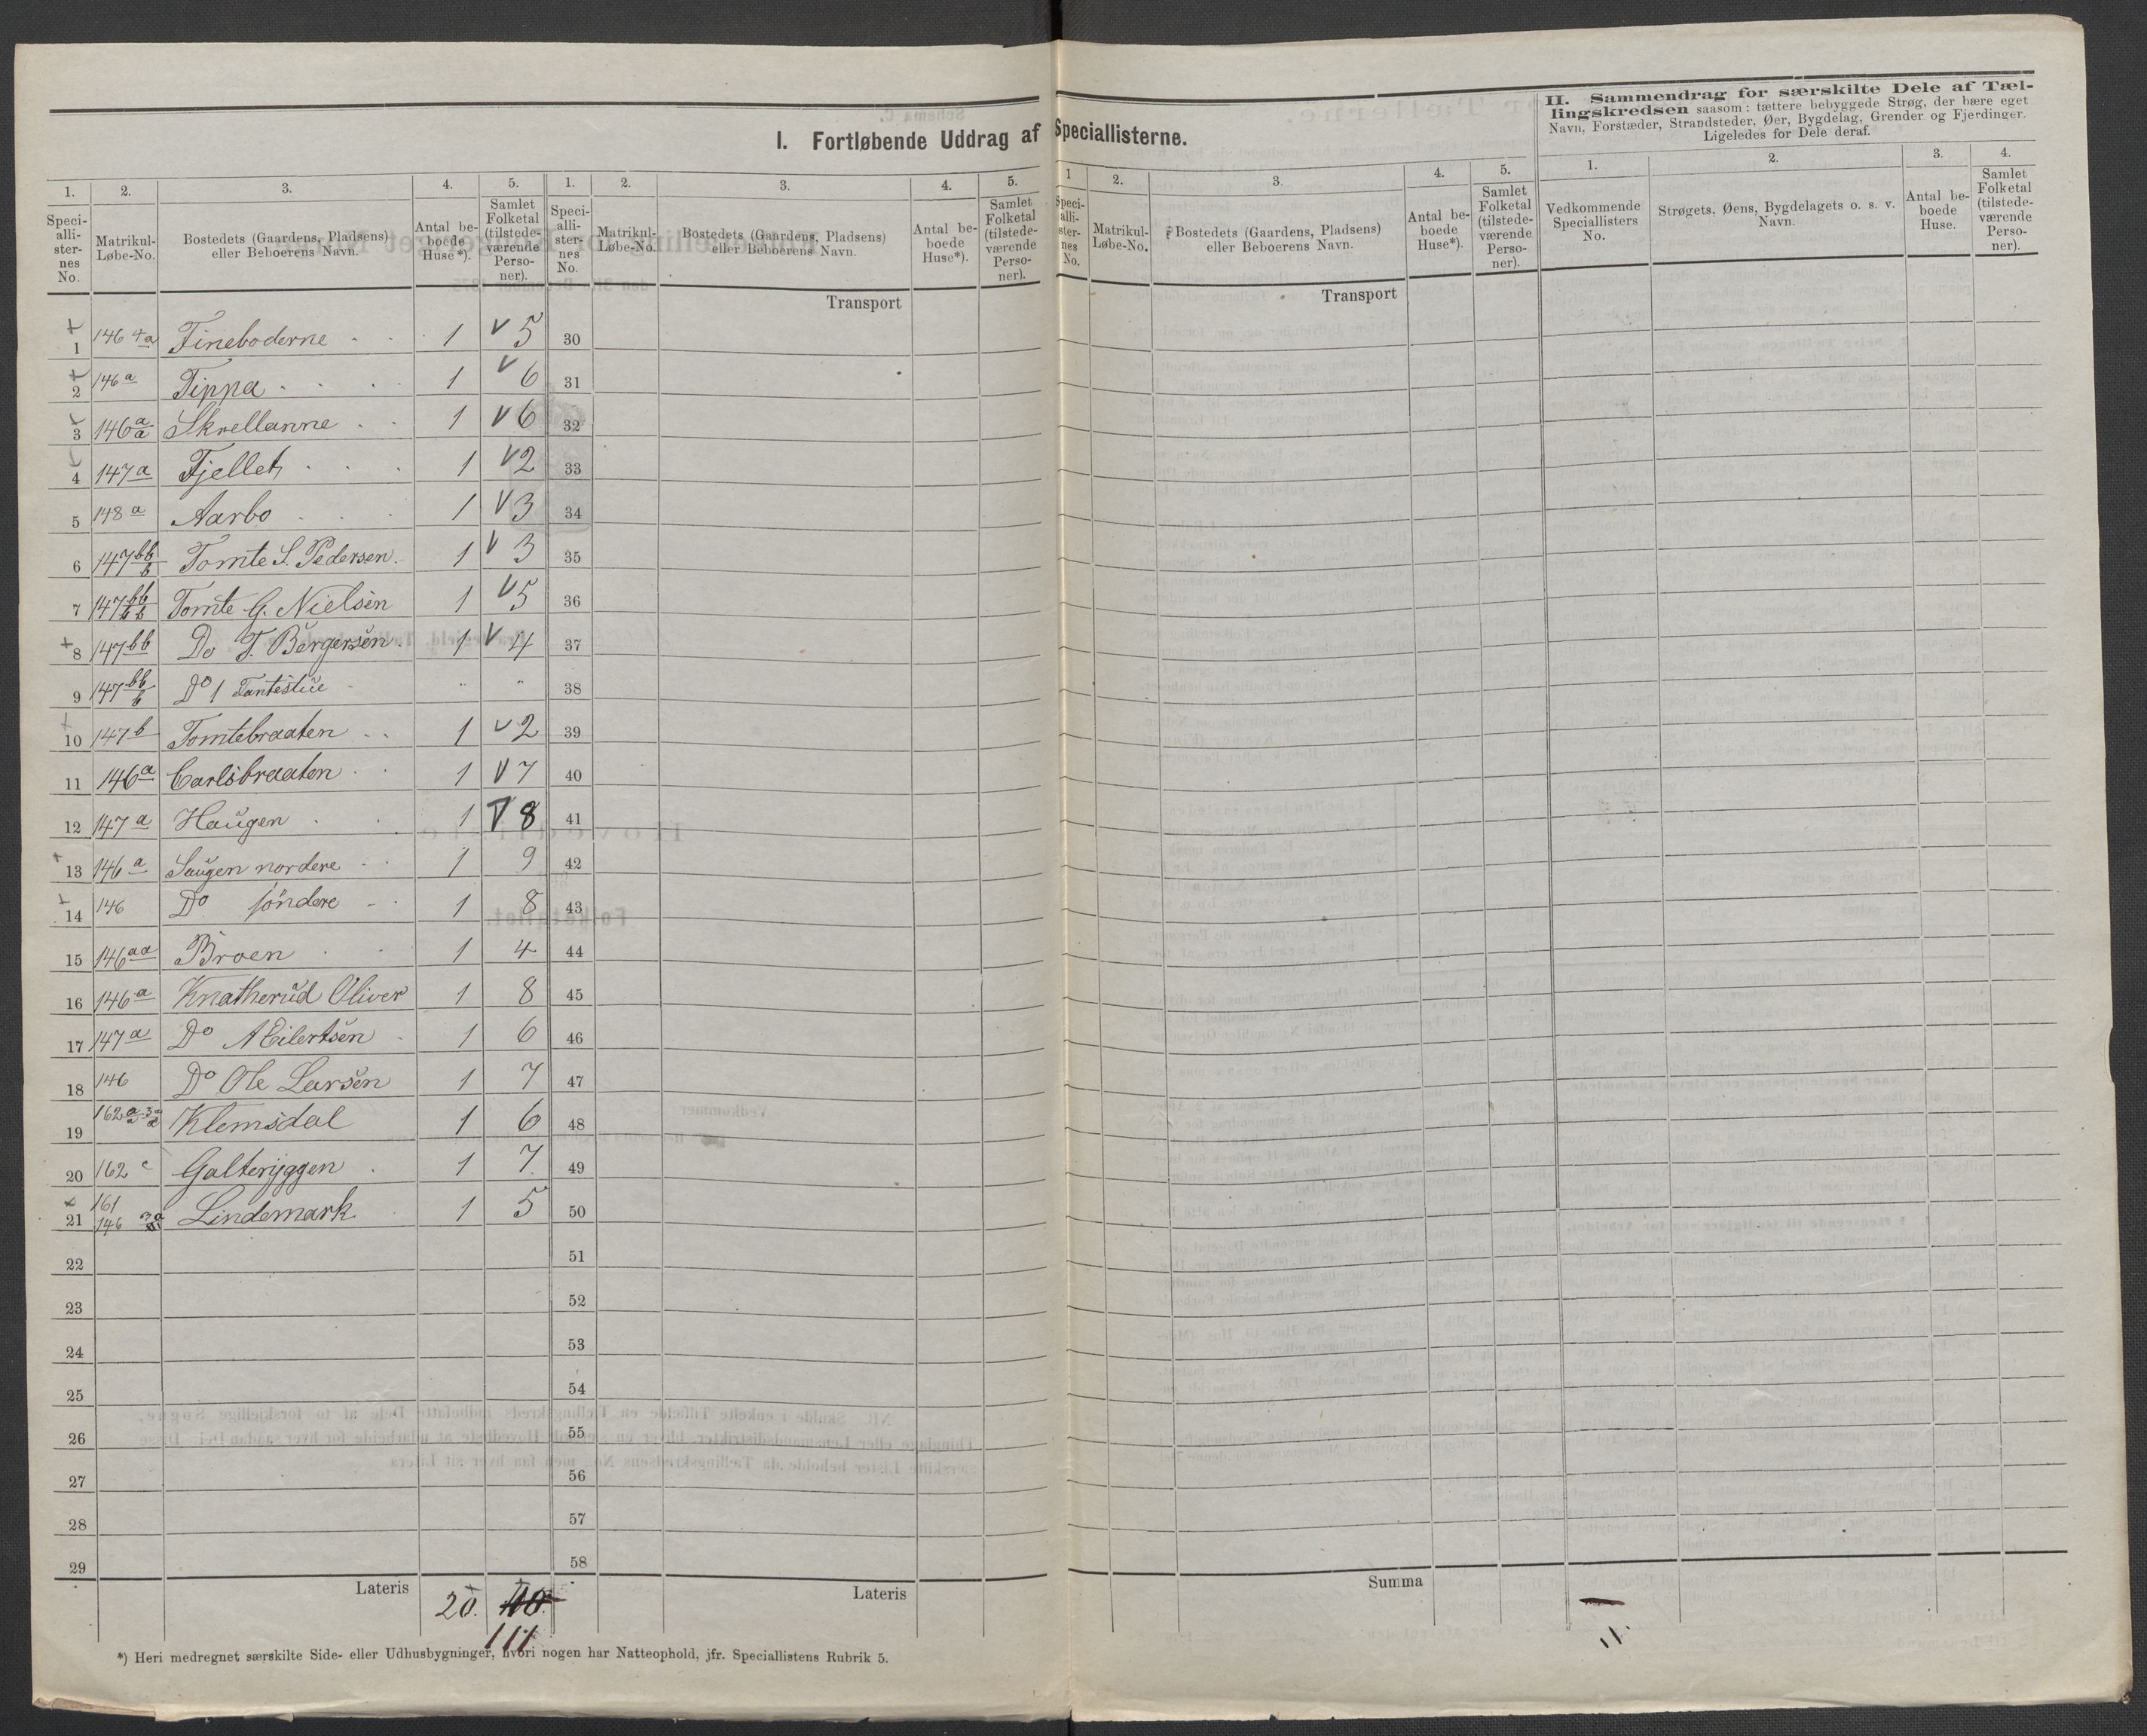 I. Fortløbende Uddrag af Speciallisterne.
II. Sammendrag for særskilte Dele af Tællingskredsen saasom: tættere bebyggede Strøg, der bære eget
Navn, Forstæder, Strandsteder, Øer, Bygdelag, Grender og Fjerdinger.
Ligeledes for Dele deraf.
1. 2. 3. 4. 5. 1. 2. 3. 4. 5. 1 2. 3. 4. 5. 1. 2. 3. 4.
Speciallisternes No. Matrikul-Løbe-No. Bostedets (Gaardens, Pladsens) eller Beboerens Navn. Antal beboede Huse*). Samlet Folketal (tilstedeværende Personer).
Speciallisternes No. Matrikul-Løbe-No. Bostedets (Gaardens, Pladsens) eller Beboerens Navn. Antal beboede Huse*). Samlet Folketal (tilstedeværende Personer).
Speciallisternes No. Matrikul-Løbe-No. Bostedets (Gaardens, Pladsens) eller Beboerens Navn. Antal beboede Huse*). Samlet Folketal (tilstedeværende Personer).
Vedkommende Speciallisters No. Strøgets, Øens, Bygdelagets o. s. v. Navn. Antal beboede Huse. Samlet Folketal (tilstedeværende Personer).
Transport Transport
1 146 4a Tineboderne 1 5 30
2 146 a Tippa 1 6 31
3 146 a a Skrellanne 1 6 32
4 147 a Fjellet 1 2 33
5 148 a Aarbo 1 3 34
6 147 bb b Tomte S. Pedersen. 1 3 35
7 147 bb bb Tomte G. Nielsen 1 5 36
8 147 bb Do T. Børgersen. 1 4 37
9 147 bb b Do 1 Fantestue " " 38
10 147 b Tomtebraaten 1 2 39
11 146 a Carlsbraaten 1 7 40
12 147 a Haugen 1 8 41
13 146 a Saugen nordere 1 9 42
14 146 Do søndere 1 8 43
15 146 aa Broen 1 4 44
16 146 a Knatherud Oliver 1 8 45
17 147 a Do A Eilertsen 1 6 46
18 146 Do Ole Larsen 1 7 47
19 162 Klemsdal 1 6 48
20 162 c Galteryggen 1 7 49
21 161 146 Lindemark 1 5 50
22 51
23 52
24 53
25 54
26 55
27 56
28 57
29 58
Lateris 20. Lateris Summa
111
*) Heri medregnet særskilte Side- eller Udhusbygninger, hvori nogen har Natteophold, jfr. Speciallistens Rubrik 5.